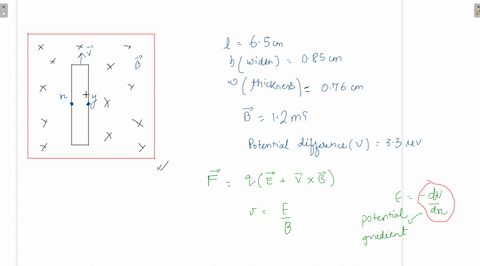 x x x
x V⃗ x B⃗
x x
x y x
x x
x x
l = 6.5 cm
b (width) = 0.85 cm
w (thickness) = 0.76 cm
B⃗ = 1.2 mT
Potential difference (V) = 3.3 μV
F⃗ = q(E⃗ + V⃗ × B⃗)
v = E/B
E = -dV/dx
potential
gradient